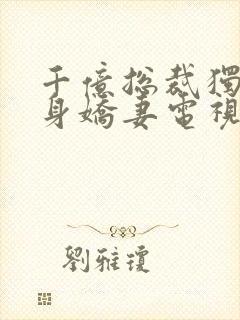 千億總裁獨
身嬌妻電視
劉雅瓊